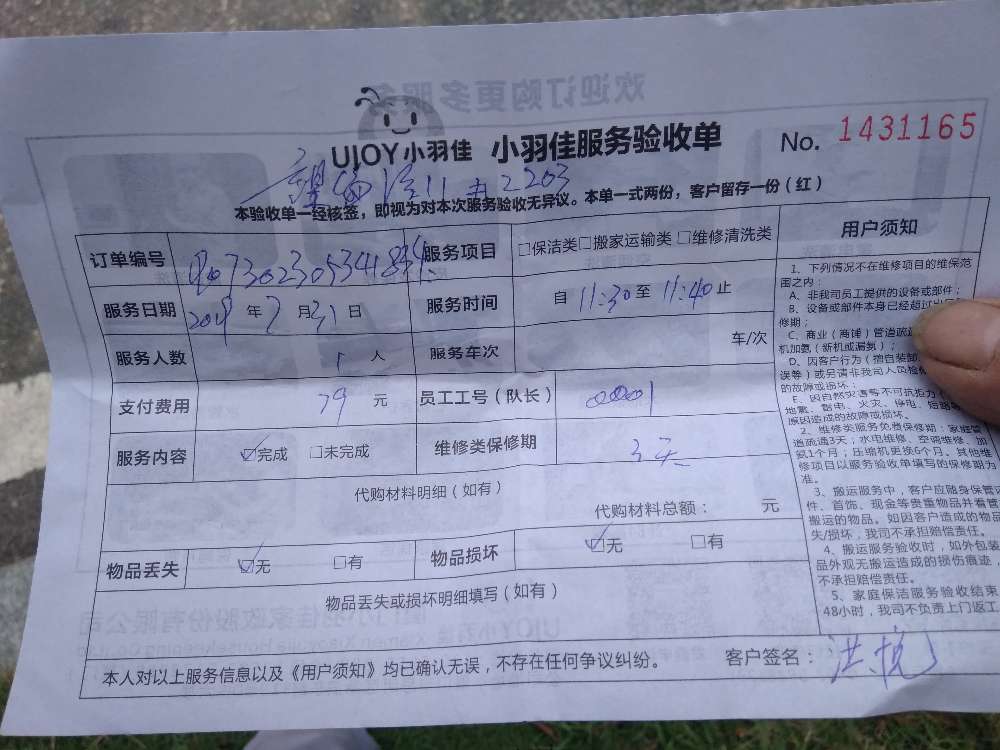 UJOY小羽佳 小羽佳服务验收单 No. 1431165
2203
本验收单一经核签，即视为对本次服务验收无异议。本单一式两份，客户留存一份（红）
订单编号
服务项目 □保洁类□搬家运输类 □维修清洗类
服务日期 年 7 月 31 日
服务时间 自 11:30 至 11:40 止
服务人数 1 人
服务车次 车/次
支付费用 79 元
员工工号（队长） 0001
服务内容 ☑完成 □未完成
维修类保修期 3天
代购材料明细（如有）
代购材料总额： 元
物品丢失 ☑无 □有
物品损坏 ☑无 □有
物品丢失或损坏明细填写（如有）
本人对以上服务信息以及《用户须知》均已确认无误，不存在任何争议纠纷。 客户签名：
用户须知
1、下列情况不在维修项目的维保范
围之内：
A、非我司员工提供的设备或部件；
B、设备或部件本身已经超过
修期；
C、商业（商铺）管道疏
机加氨（新机或漏氨）；
D、因客户行为（擅自装卸
误等）或另请非我司人员检修
的故障或损坏；
E、因自然灾害等不可抗拒力
地震、雷电、火灾、停电、短路
原因造成的故障或损坏。
2、维修类服务免费保修期：家庭管
道疏通3天；水电维修、空调维修、加
氨1个月；压缩机更换6个月。其他维
修项目以服务验收单填写的保修期为
准。
3、搬运服务中，客户应随身保管
件、首饰、现金等贵重物品并看管
搬运的物品。如因客户造成的物品
失/损坏，我司不承担赔偿责任。
4、搬运服务验收时，如外包装
品外观无搬运造成的损伤痕迹，
不承担赔偿责任。
5、家庭保洁服务验收结束
48小时，我司不负责上门返工